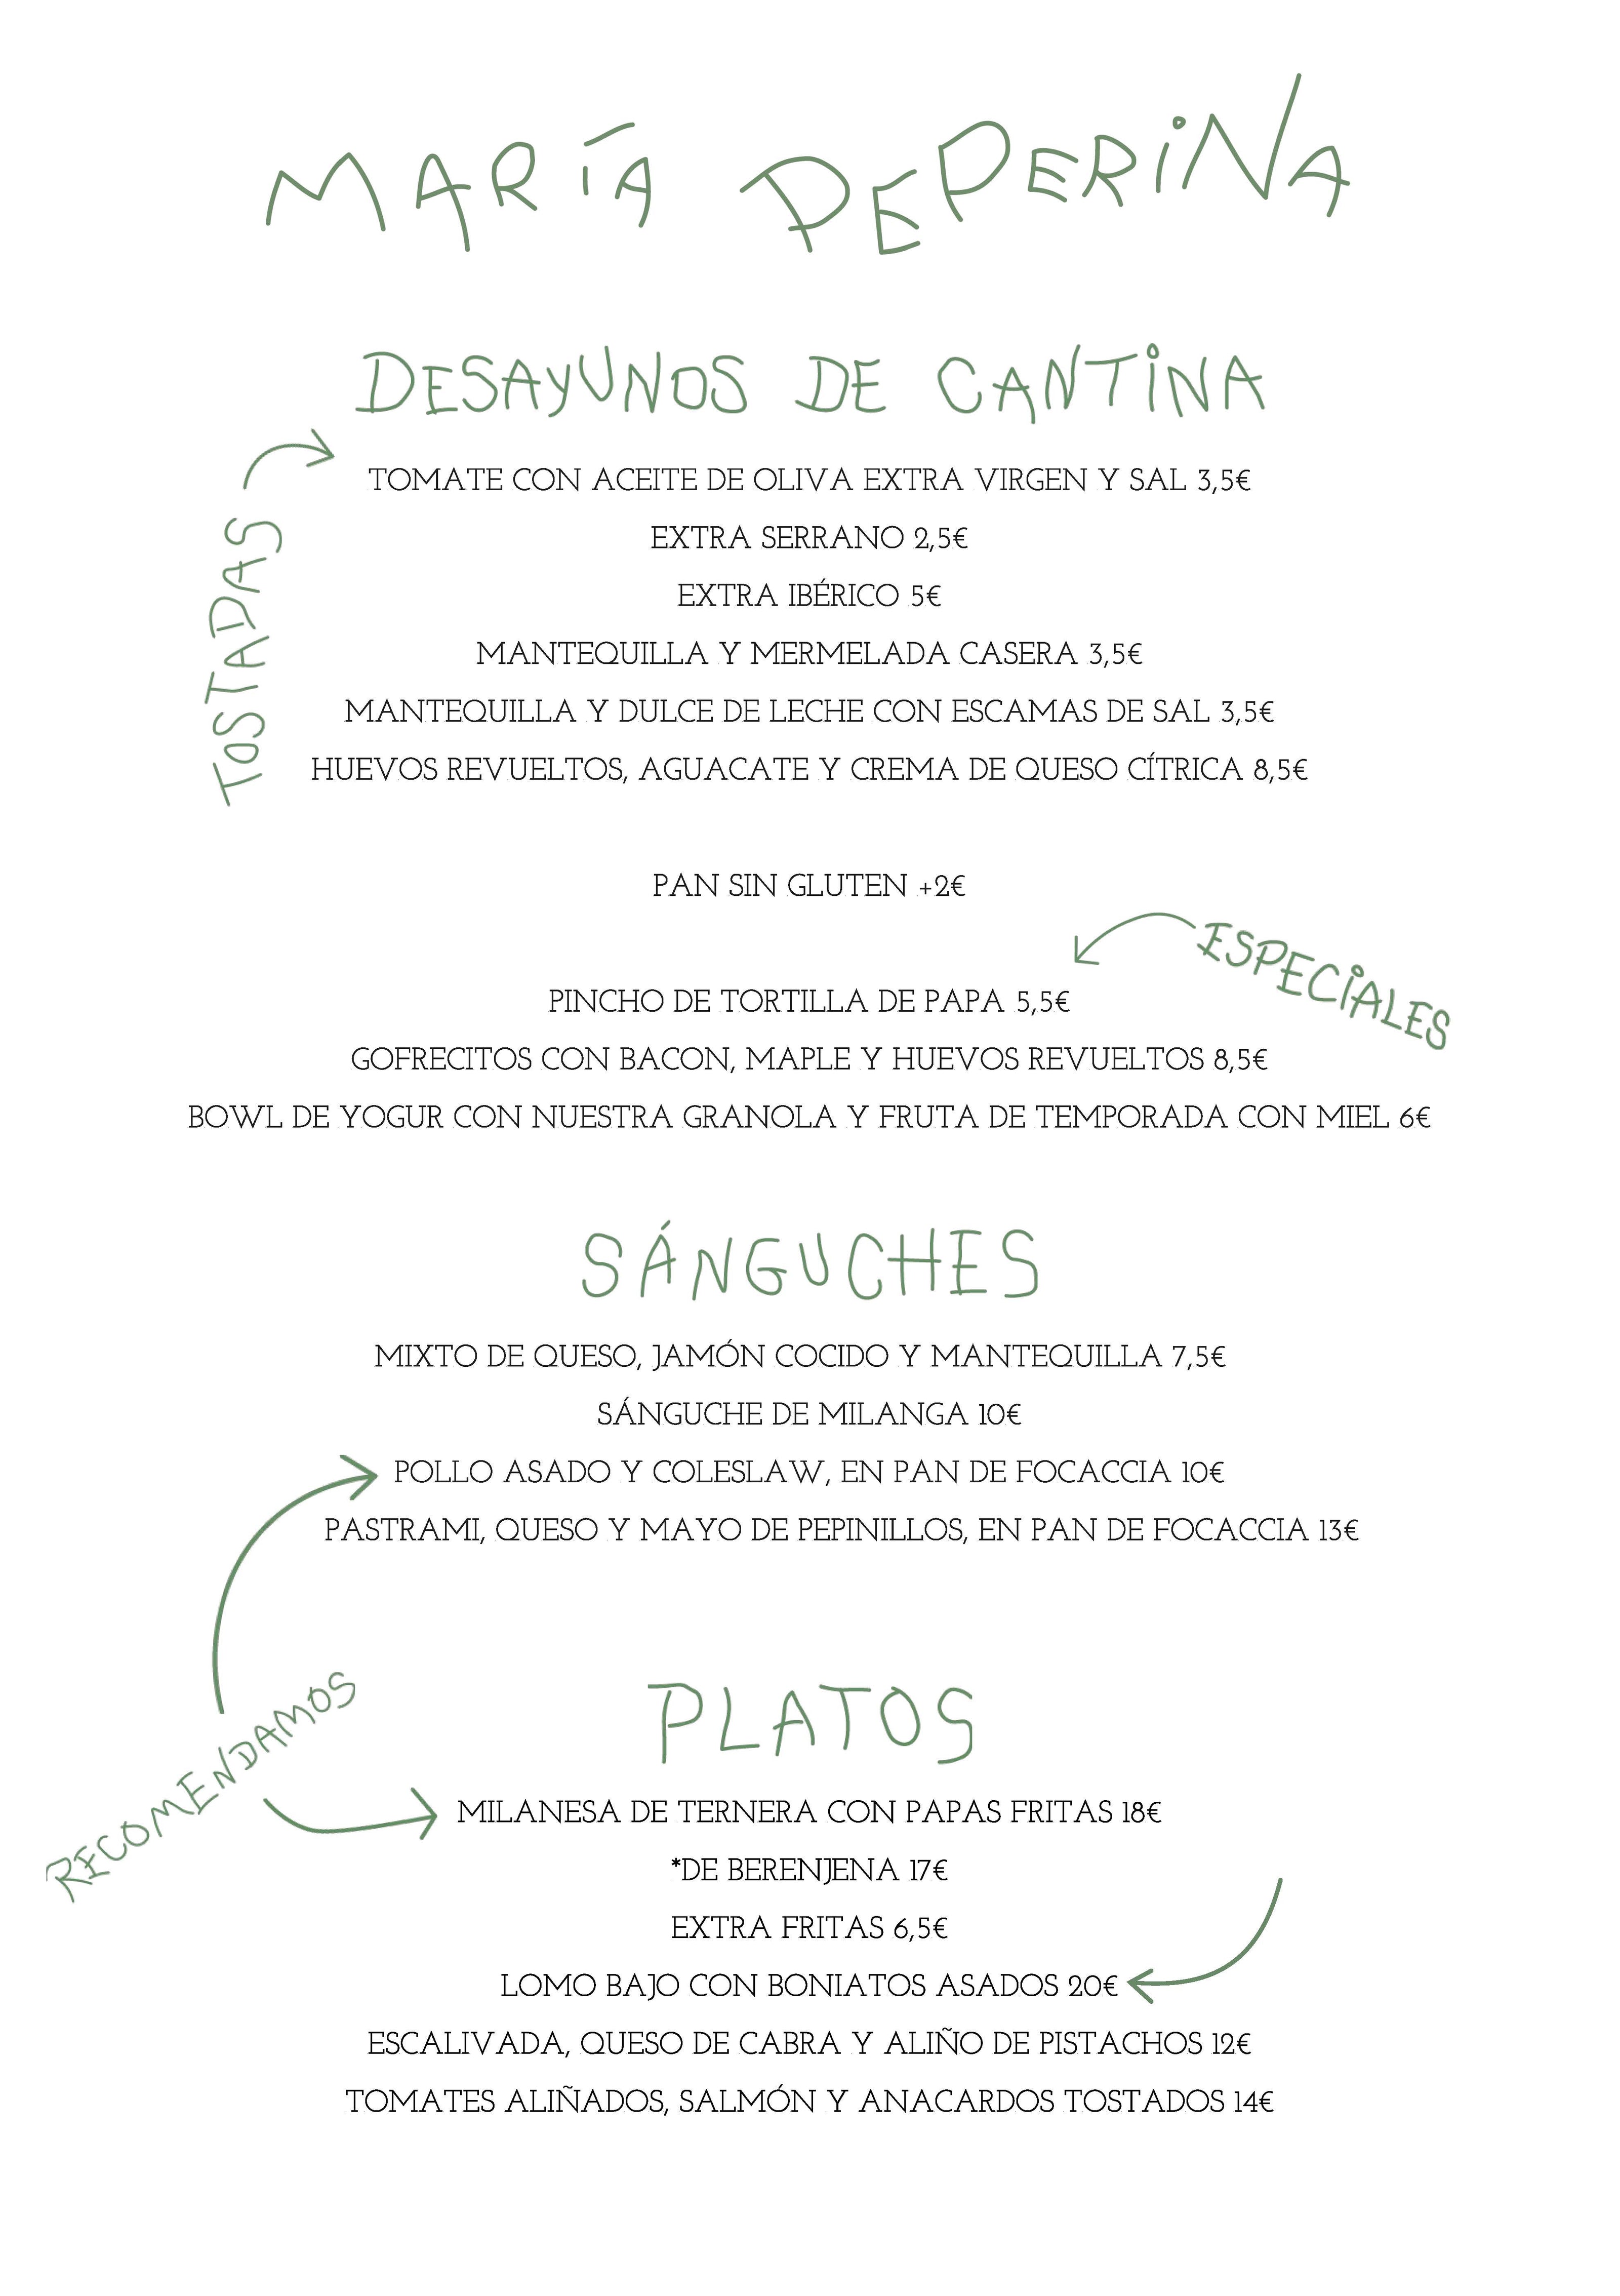 MARÍA PEPERINA
DESAYUNOS DE CANTINA
TOSTADAS
TOMATE CON ACEITE DE OLIVA EXTRA VIRGEN Y SAL 3,5€
EXTRA SERRANO 2,5€
EXTRA IBÉRICO 5€
MANTEQUILLA Y MERMELADA CASERA 3,5€
MANTEQUILLA Y DULCE DE LECHE CON ESCAMAS DE SAL 3,5€
HUEVOS REVUELTOS, AGUACATE Y CREMA DE QUESO CÍTRICA 8,5€
PAN SIN GLUTEN +2€
ESPECIALES
PINCHO DE TORTILLA DE PAPA 5,5€
GOFRECITOS CON BACON, MAPLE Y HUEVOS REVUELTOS 8,5€
BOWL DE YOGUR CON NUESTRA GRANOLA Y FRUTA DE TEMPORADA CON MIEL 6€
SÁNGUCHES
MIXTO DE QUESO, JAMÓN COCIDO Y MANTEQUILLA 7,5€
SÁNGUCHE DE MILANGA 10€
POLLO ASADO Y COLESLAW, EN PAN DE FOCACCIA 10€
PASTRAMI, QUESO Y MAYO DE PEPINILLOS, EN PAN DE FOCACCIA 13€
RECOMENDAMOS
PLATOS
MILANESA DE TERNERA CON PAPAS FRITAS 18€
*DE BERENJENA 17€
EXTRA FRITAS 6,5€
LOMO BAJO CON BONIATOS ASADOS 20€
ESCALIVADA, QUESO DE CABRA Y ALIÑO DE PISTACHOS 12€
TOMATES ALIÑADOS, SALMÓN Y ANACARDOS TOSTADOS 14€